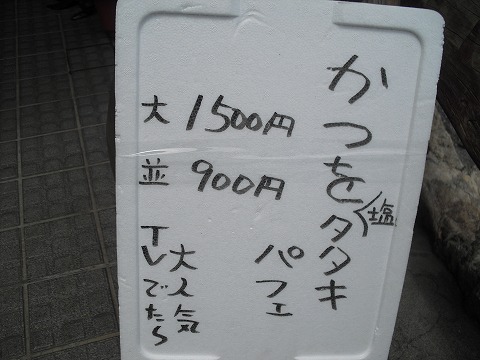 かつをタタキ
塩
パフェ
大 1500円
並 900円
大人気
TVでたら